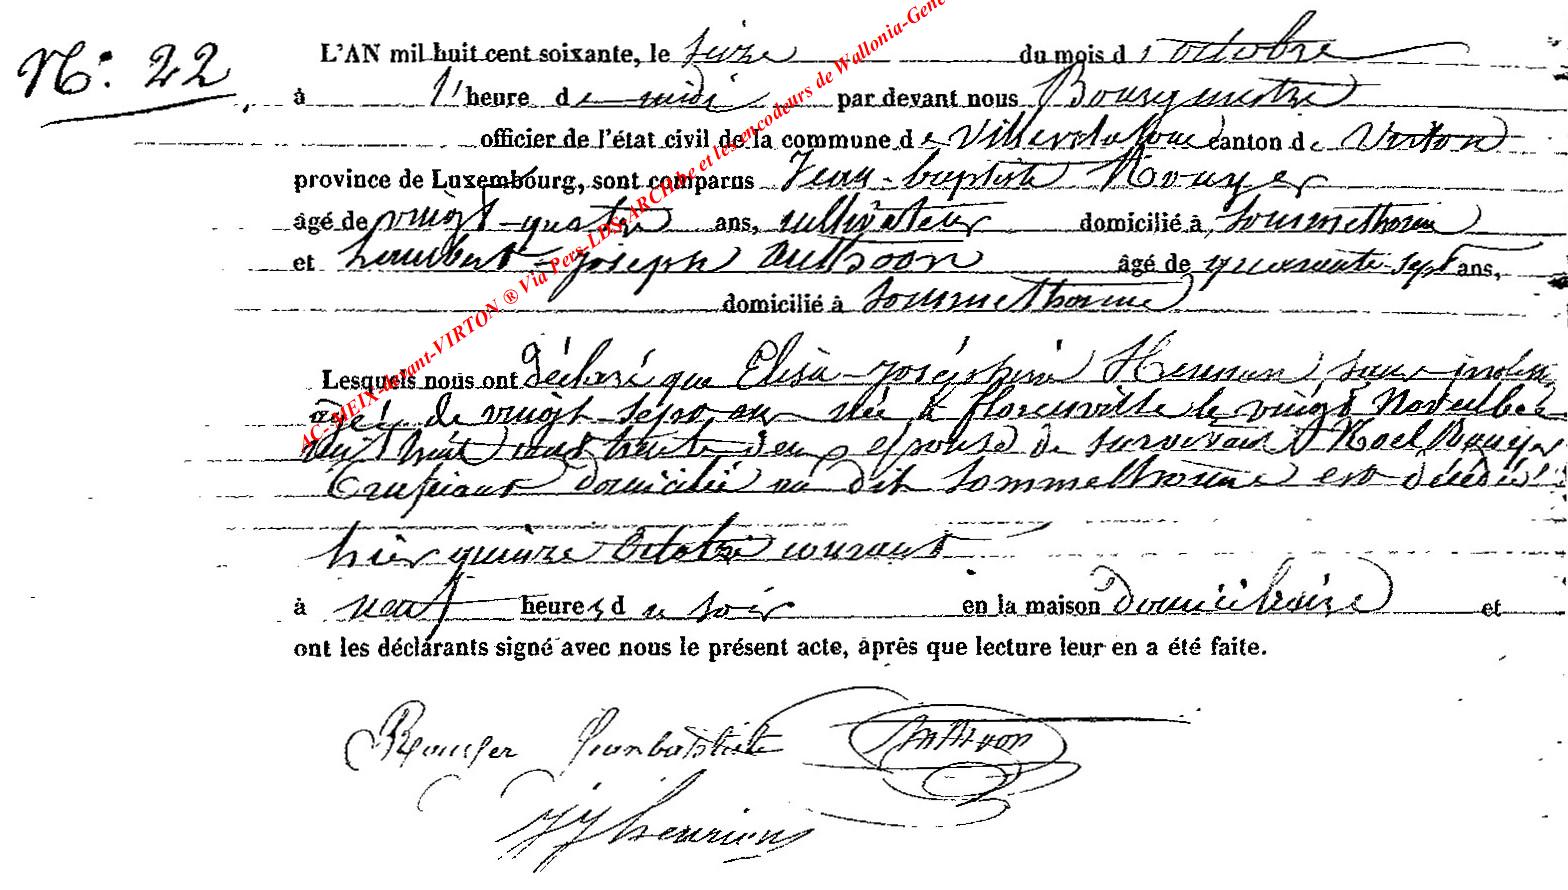 N° 22
L'AN mil huit cent soixante, le seize du mois d'octobre
à l'heure de midi par devant nous Bourgmestre
officier de l'état civil de la commune de Villersdtloue canton de Virton
province de Luxembourg, sont comparus Jean-baptiste Rouyer
âgé de vingt-quatre ans, cultivateur domicilié à Sommethonne
et Lambert-Joseph âgé de quarante-sept ans,
domicilié à Sommethonne
Lesquels nous ont déclaré que Elisa-Joséphine sans
âgé de vingt sept an née à florenville le vingt Novembre
huit cent trente deux epouse de survivant Noel Rouyer
domicilié au dit Sommethonne est décédé
hier quinze Octobre courant
à neuf heures du soir en la maison domiciliaire et
ont les déclarants signé avec nous le présent acte, après que lecture leur en a été faite.
Rouyer Jeanbabtiste
JJhenrion
AC-MEIX-devant-VIRTON ® Via Pers-LDS-ARCHbe et les encodeurs de Wallonia-Gene